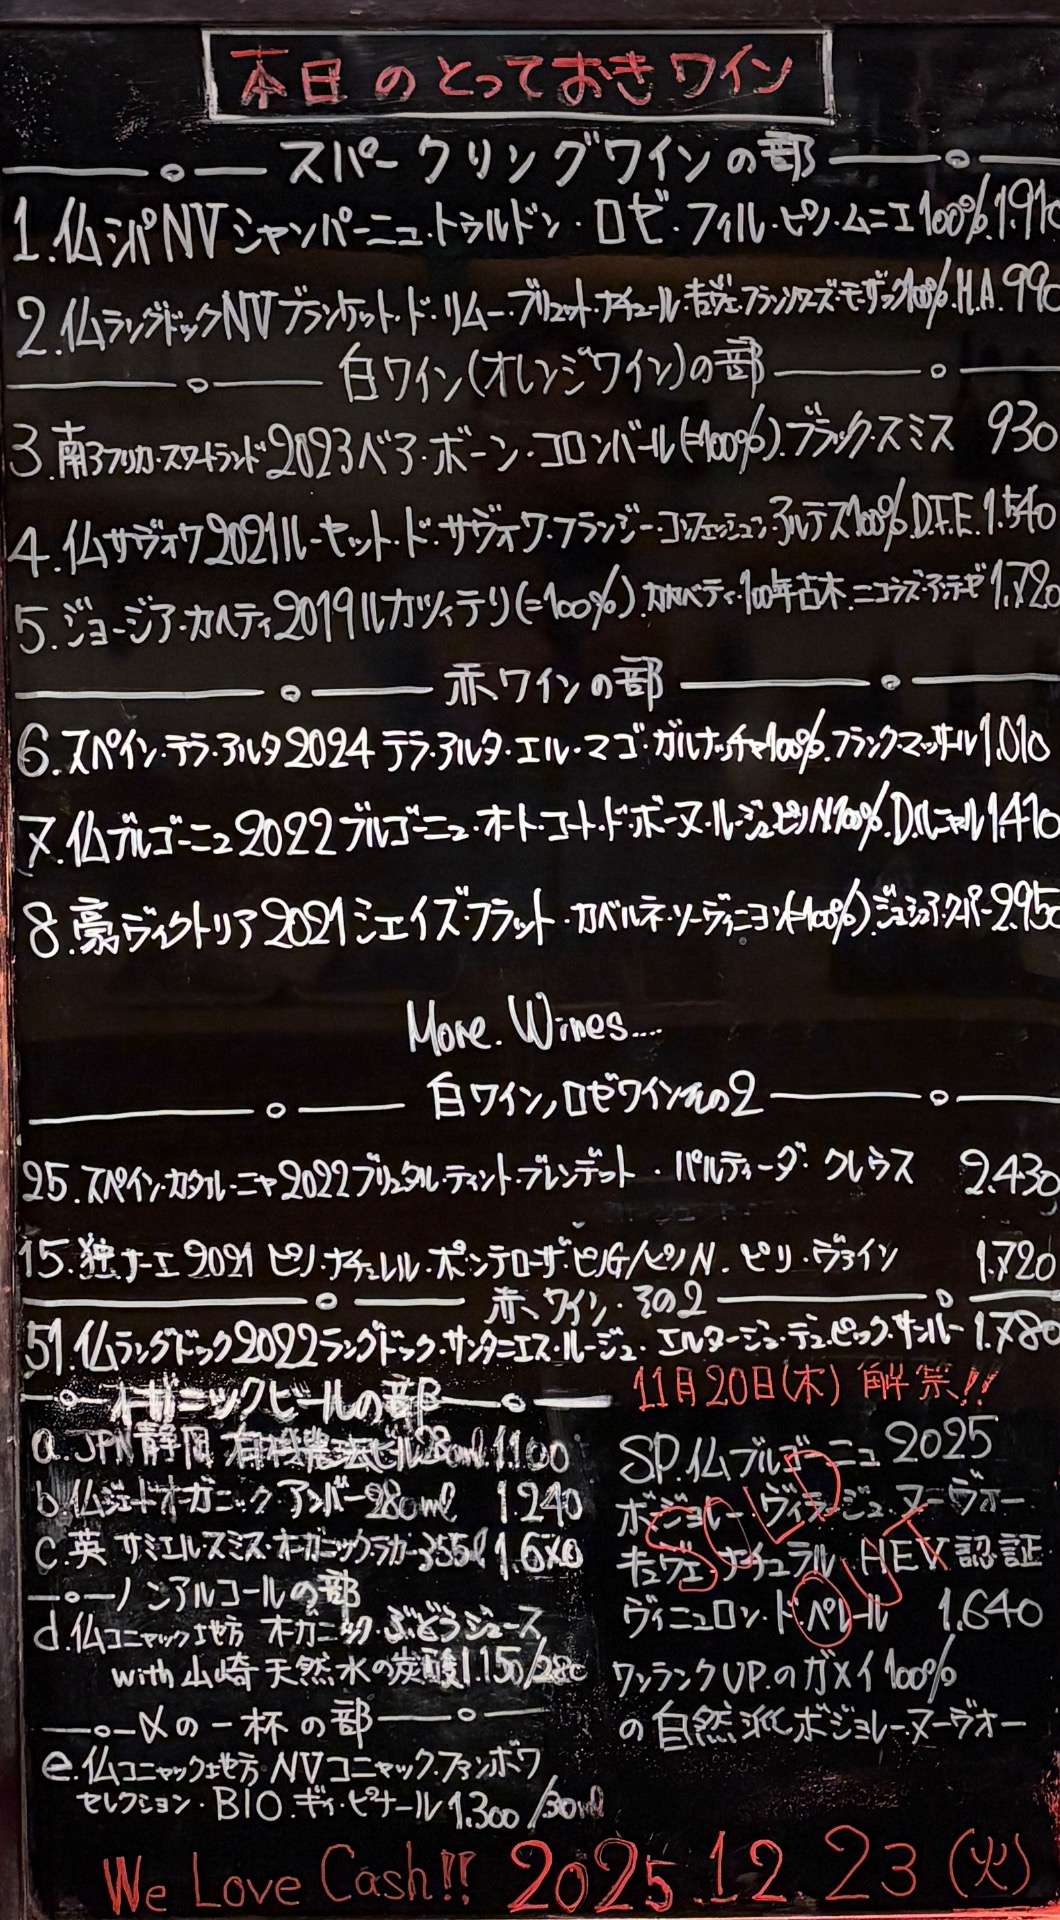 本日のとっておきワイン
スパークリングワインの部
1.仏シャンパNVシャンパーニュ・トゥルドン・ロゼ・フィル・ピノ・ムニエ100%.1.91
2.仏ラングドックNVブランケット・ド・リムー・ブリュット・ナチュール・キュヴェ・フランソワーズ・モーザック100%.H.A.99
白ワイン(オレンジワイン)の部
3.南アフリカ・スワートランド2023ベア・ボーン・コロンバール(=100%).ブラック・スミス 930
4.仏サヴォワ2021ルーセット・ド・サヴォワ・フランジー・コンフェッション アルテス100%.D.F.E.1.540
5.ジョージア・カヘティ2019ルカツィテリ(=100%).カカベティ・100年古木.ニコラズ・アンテゼ1.720
赤ワインの部
6.スペイン・テラ・アルタ2024テラ・アルタ・エル・マゴ・ガルナッチャ100%.フランク・マッサール1.010
7.仏ブルゴーニュ2022ブルゴーニュ・オート・コート・ド・ボーヌ・ルージュピノN100%.D.ルニャル1.410
8.豪・ヴィクトリア2021シェイズ・フラット・カベルネ・ソーヴィニヨン(=100%).ジョシュア・クーパー2.950
More. Wines....
白ワイン,ロゼワインその2
25.スペイン・カタルーニャ2022ブリュタル・ティント・ブレンデット・パルティーダ・クレウス 2.430
15.独ナーエ2021ピノ・ナチュレル・ポンテローザ・ピノG/ピノN.ピリ・ヴァイン 1.720
赤ワイン・その2
51.仏ラングドック2022ラングドック・サンタニエス・ルージュ・エルタージュ・デュ・ピック・サンルー1.780
オーガニックビールの部
a.JPN静岡 有機農法ビール28ml.1100
b.仏ジェードオーガニック・アンバー280ml 1.240
c.英サミエル・スミス・オーガニック・ラガー355l 1.6
ノンアルコールの部
d.仏コニャック地方 オーガニック・ぶどうジュース
with 山崎天然水の炭酸1.150/280
〆の一杯の部
e.仏コニャック地方NVコニャック・ファンボワ
セレクション・BIO.ギィ・ピナール1.300/30ml
11月20日(木)解禁!!
SP.仏ブルゴーニュ2025
ボジョレー・ヴィラージュ・ヌーヴォー
キュヴェ・ナチュラル.HEV認証
ヴィニュロン・ド・ベレール 1.640
SOLD OUT
ワンランクUP.のガメイ100%
の自然派ボジョレーヌーヴォー
We Love Cash!! 2025.12.23(火)